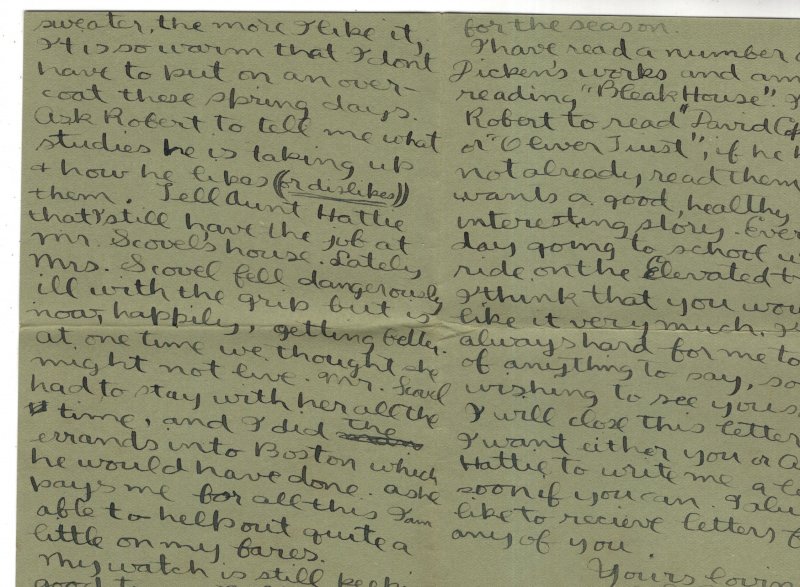 sweater, the more I like it,
It is so warm that I don't
have to put on an over-
coat these spring days.
Ask Robert to tell me what
studies he is taking up
+ how he likes (or dislikes)
them. Tell Aunt Hattie
that I still have the job at
Mr. Scovel's house. Lately
Mrs. Scovel fell dangerously
ill with the grip but is
now, happily, getting better.
at one time we thought she
might not live. Mr. Scovel
had to stay with her all the
time, and I did the
errands into Boston which
he would have done. as he
pays me for all this I am
able to help out quite a
little on my fares.
My watch is still keeping
good
for the season.
I have read a number
Dicken's works and am
reading "Bleak House".
Robert to read "David
or "Oliver Twist", if he
not already, read them
wants a good, healthy
interesting story. Every
day going to school
ride on the Elevated
I think that you would
like it very much.
always hard for me to
of anything to say, so
wishing to see you
I will close this letter
I want either you or
Hattie to write me a
soon if you can. I
like to recieve letters
any of you.
Yours loving